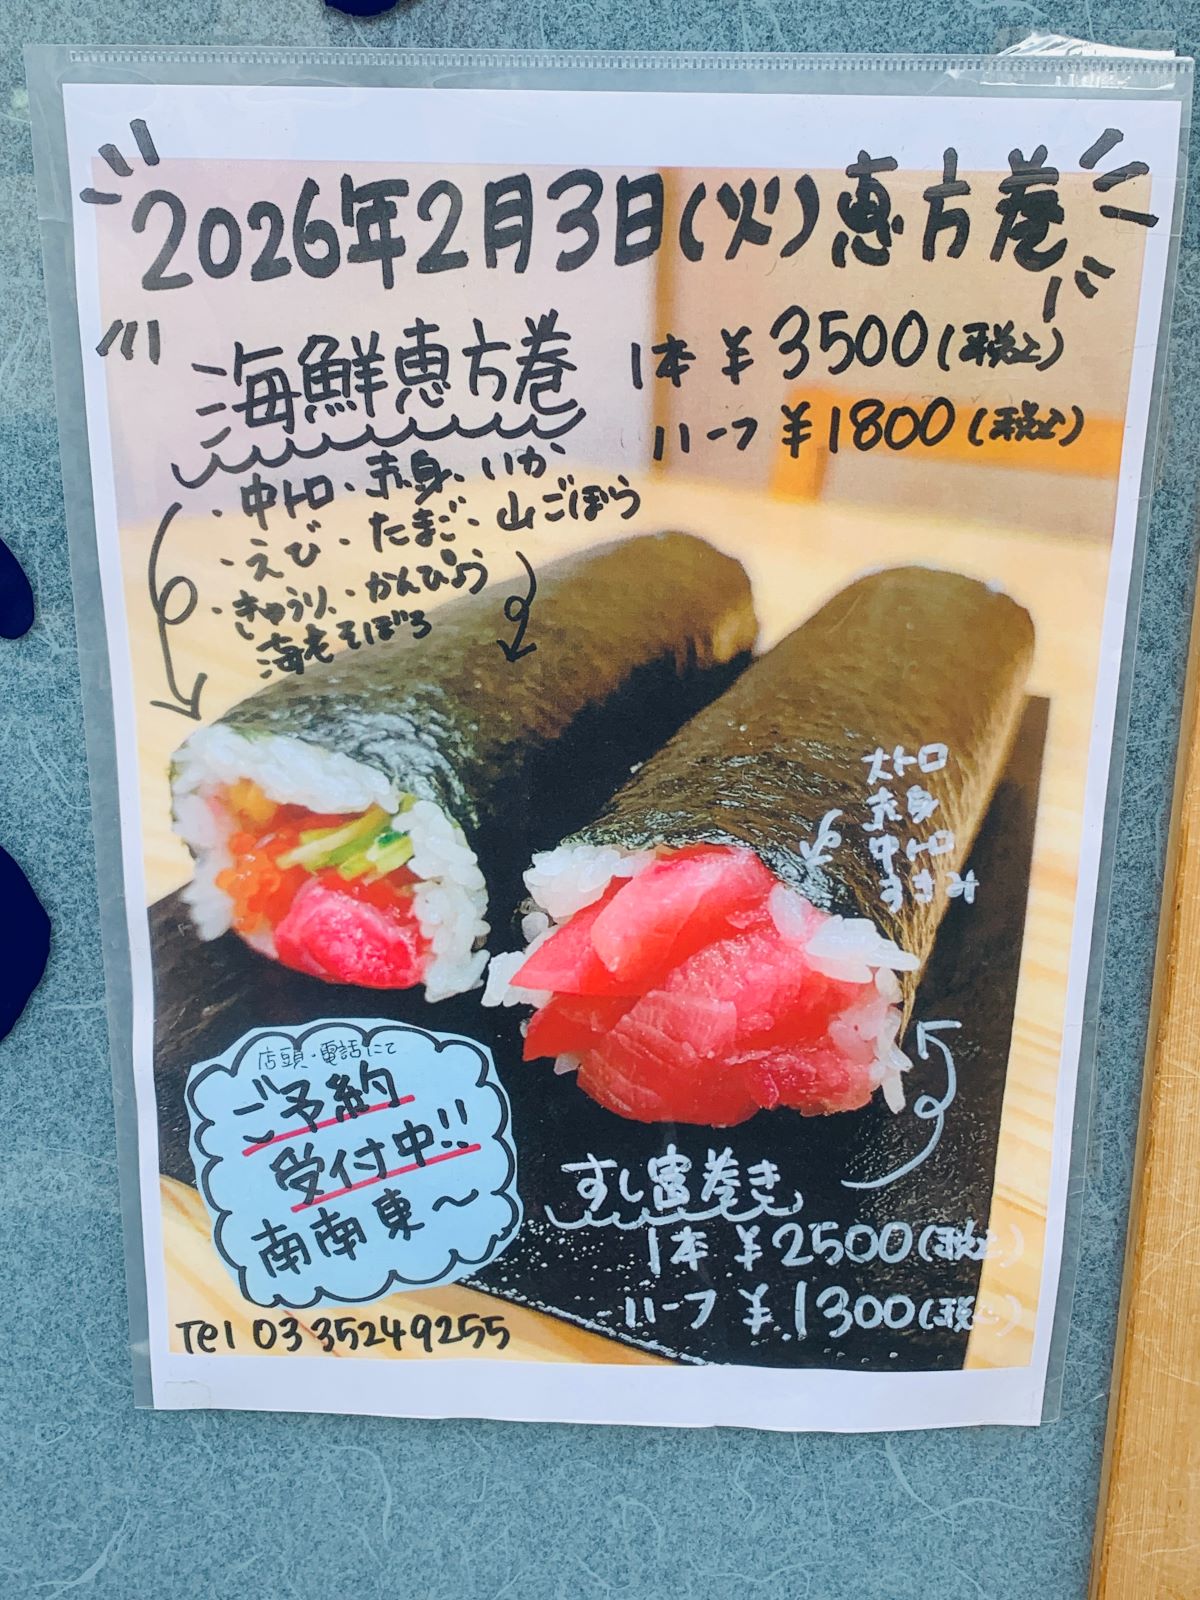 2026年2月3日(火)恵方巻
海鮮恵方巻
1本 ¥3500(税込)
ハーフ ¥1800(税込)
・中トロ・赤身、いか、
・えび・たまご・山ごぼう
・きゅうり、・かんぴょう
海老そぼろ
大トロ
赤身
中トロ
店頭・電話にて
ご予約
受付中!!
南南東〜
すし富巻き
1本 ¥2500(税込)
ハーフ ¥1300(税込)
Tel 03 35249255